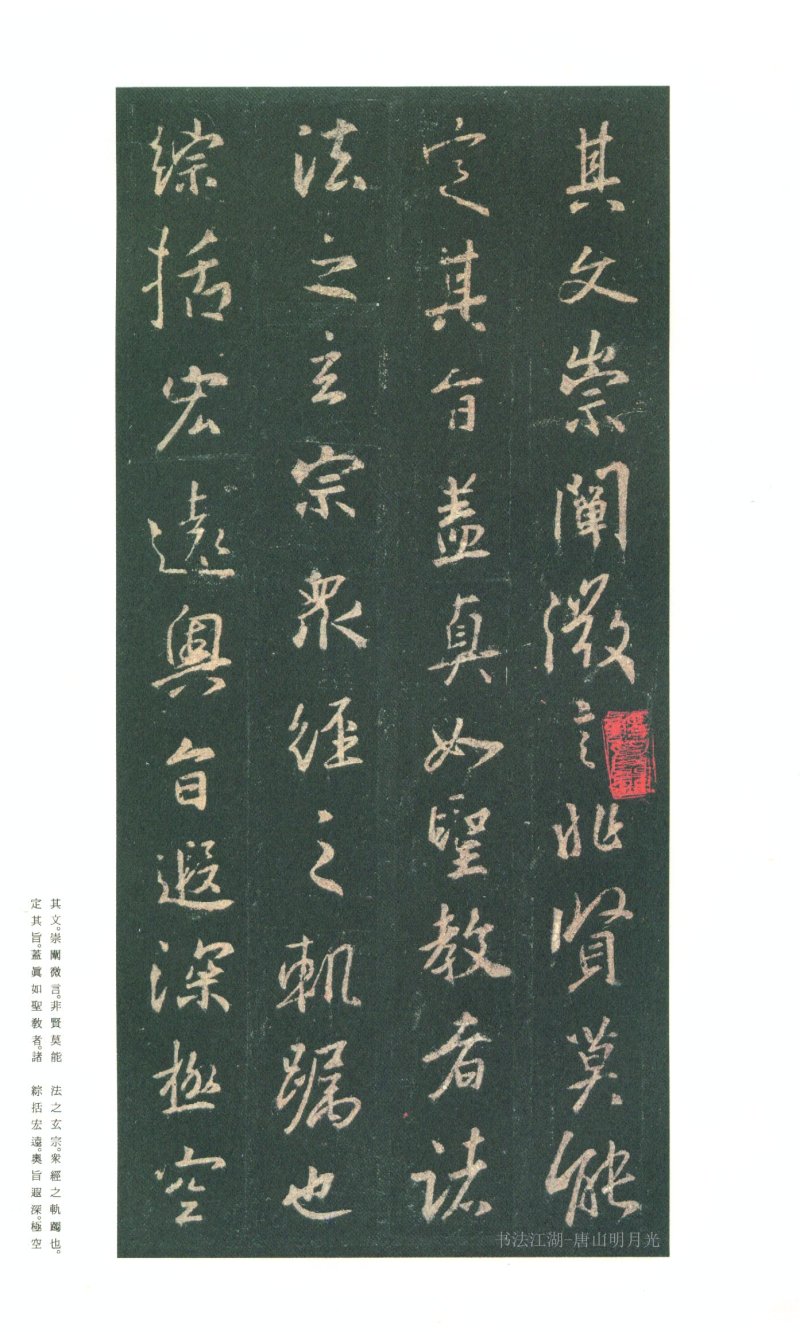 其文崇闡微言非賢莫能
定其旨蓋真如聖教者諸
法之玄宗衆經之軌躅也
綜括宏遠奧旨遐深極空
其文。崇闡微言。非賢莫能
定其旨。蓋眞如聖教者。諸
法之玄宗。衆經之軌躅也。
綜括宏遠。奧旨遐深。極空
书法江湖-唐山明月光